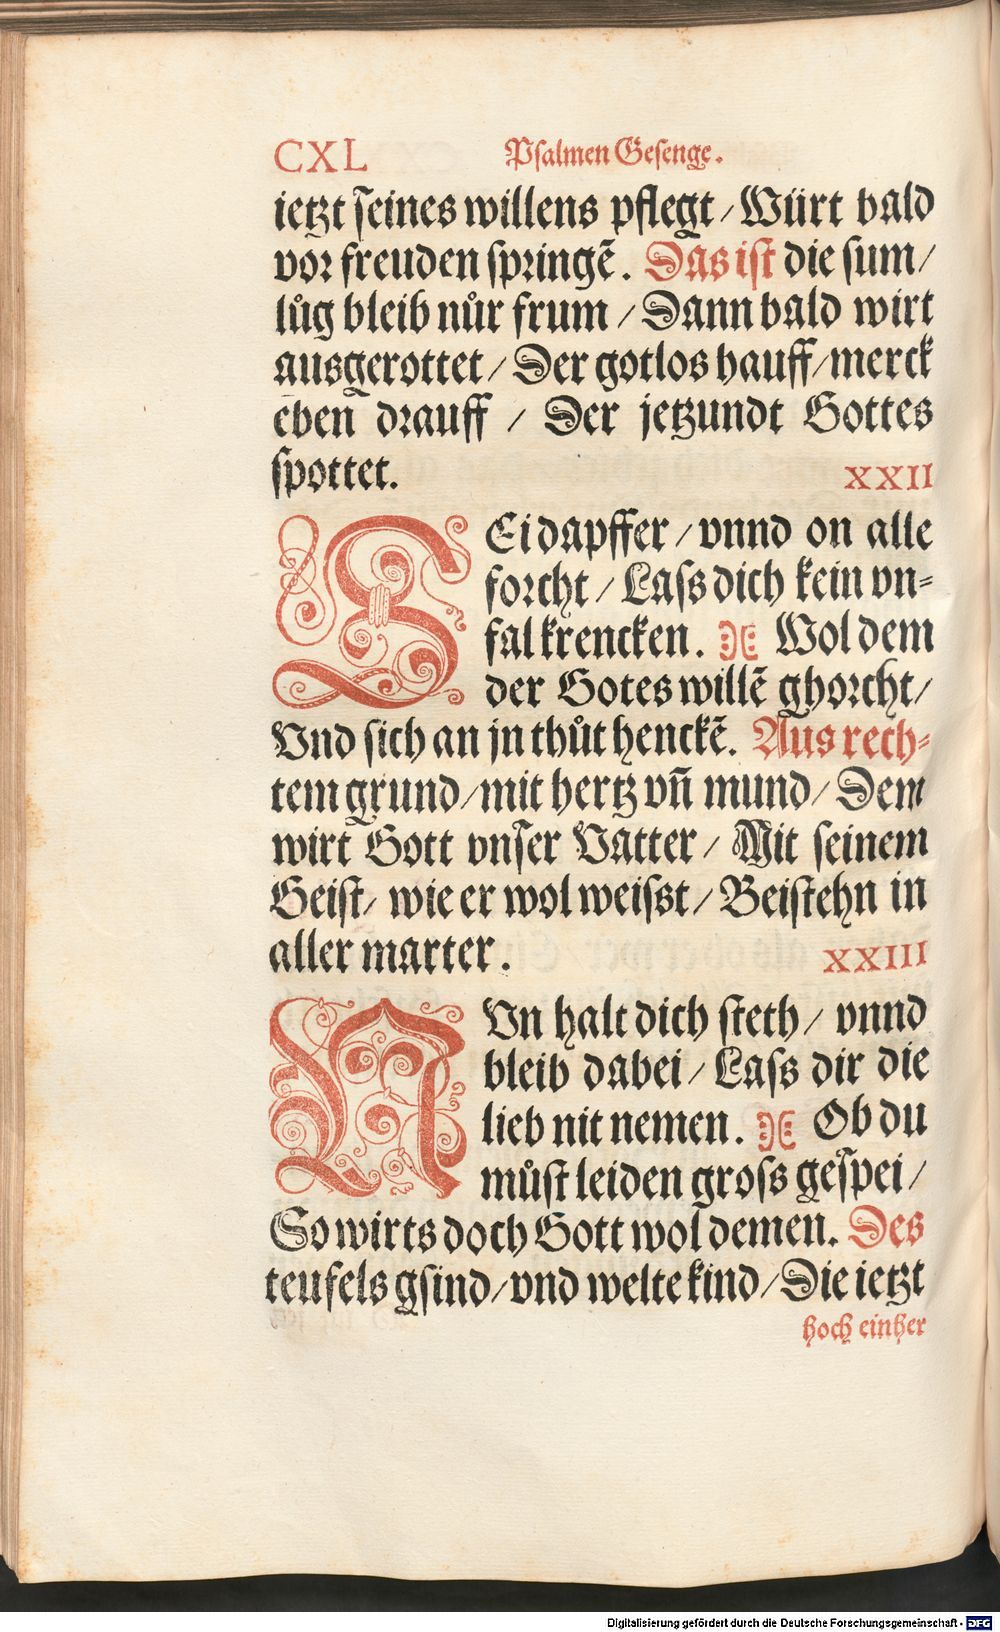 CXL Psalmen Gesenge.
ietzt seines willens pflegt / Würt bald
vor freuden springẽ. Das ist die sum /
lůg bleib nůr frum / Dann bald wirt
ausgerottet / Der gotlos hauff / merck
eben drauff / Der jetzundt Gottes
spottet. XXII
SEi dapffer / vnnd on alle
forcht / Lass dich kein vn=
fal krencken. Wol dem
der Gotes willẽ ghorcht /
Vnd sich an jn thůt henckẽ. Aus rech=
tem grund / mit hertz vñ mund / Dem
wirt Gott vnser Vatter / Mit seinem
Geist / wie er wol weisst / Beistehn in
aller marter. XXIII
NVn halt dich steth / vnnd
bleib dabei / Lass dir die
lieb nit nemen. Ob du
můst leiden gross gespei /
So wirts doch Gott wol demen. Des
teufels gsind / vnd welte kind / Die ietzt
hoch einher
Digitalisierung gefördert durch die Deutsche Forschungsgemeinschaft - DFG